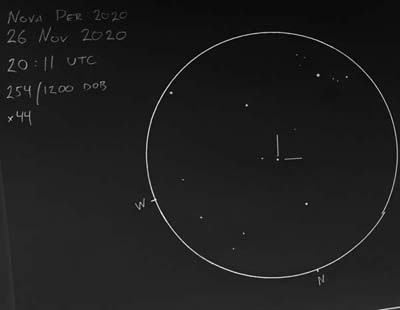 NOVA PER 2020
26 NOV 2020
20:11 UTC
254/1200 DOB
×44
W
N